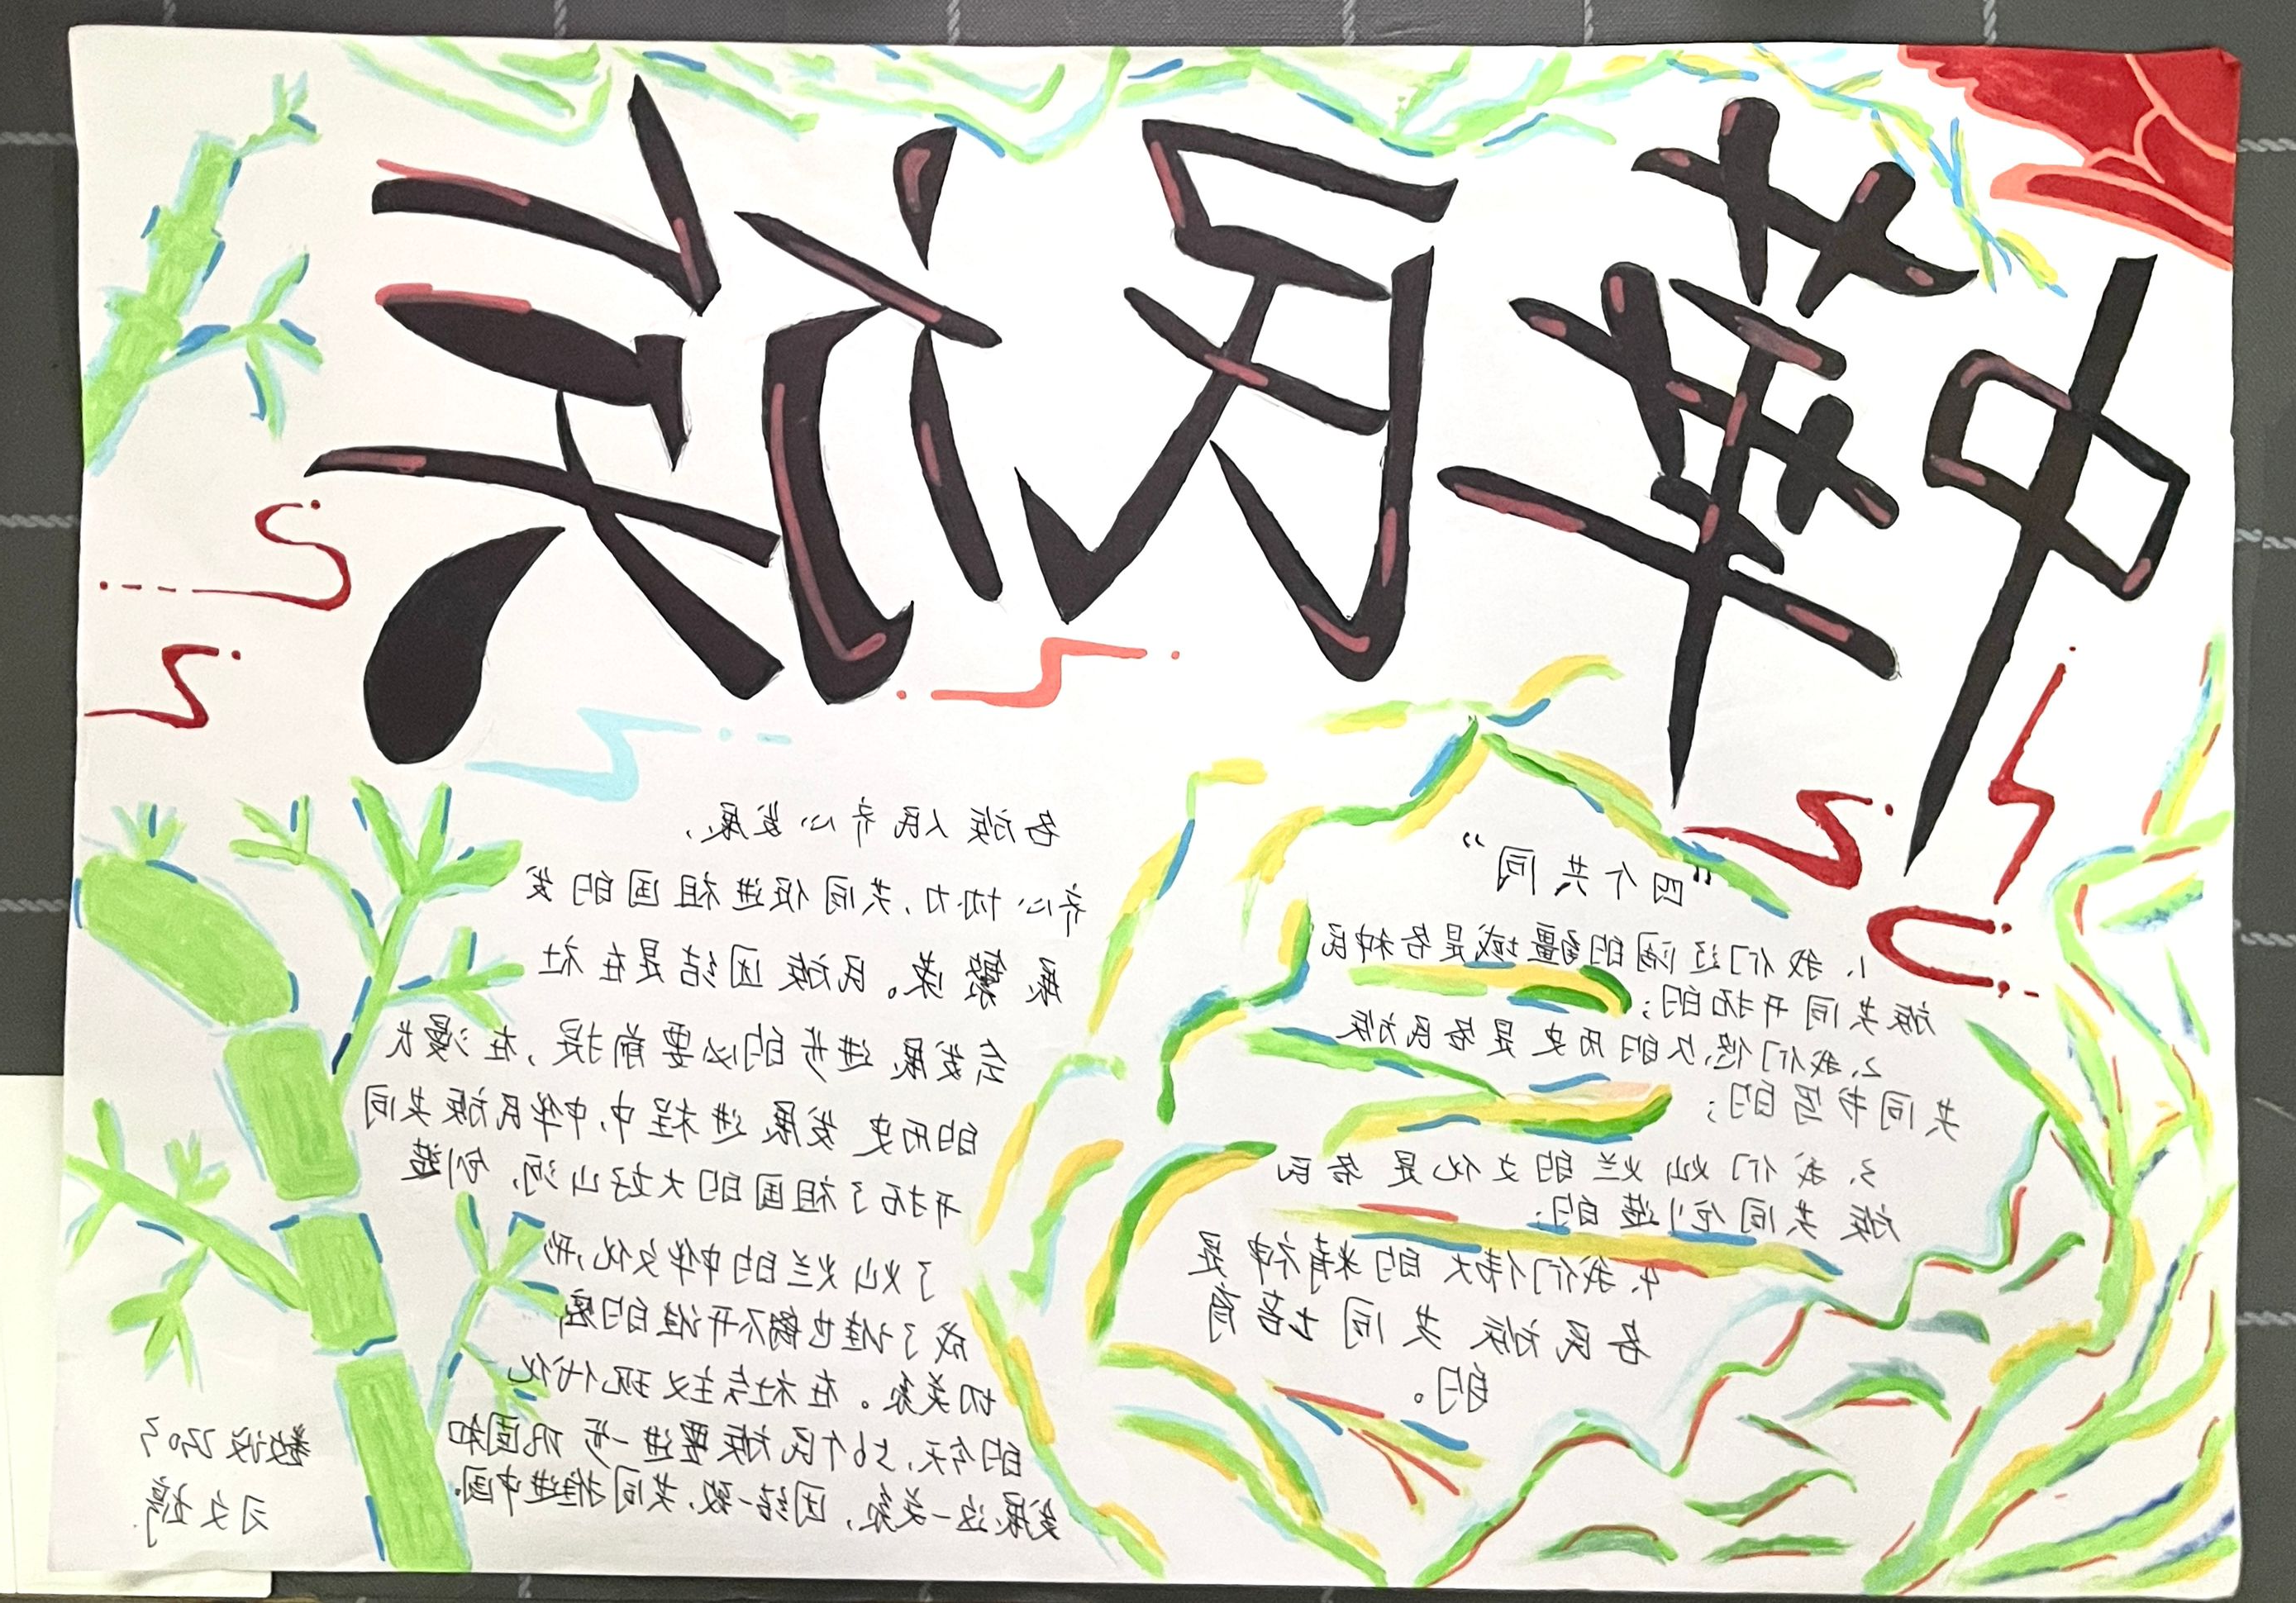 中華民族
“四个共同”
1、我们辽阔的疆域是各种民
族共同开拓的;
2、我们悠久的历史是各民族
共同书写的;
3、我们灿烂的文化是各民
族共同创造的;
4、我们伟大的精神是
各民族共同培育
的。
各族人民齐心发展,
齐心协力,共同促进祖国的发
展繁荣。民族团结是在社
会发展进步的必要前提,在漫长
的历史发展进程中,中华民族共同
开拓了祖国的大好山河,创造
了灿烂的中华文化,形
成了谁也离不开谁的密
切关系。在社会主义现代化
的今天,56个民族要进一步巩固和
发展这一关系,团结一致,共同推进中国.
数设
文婷